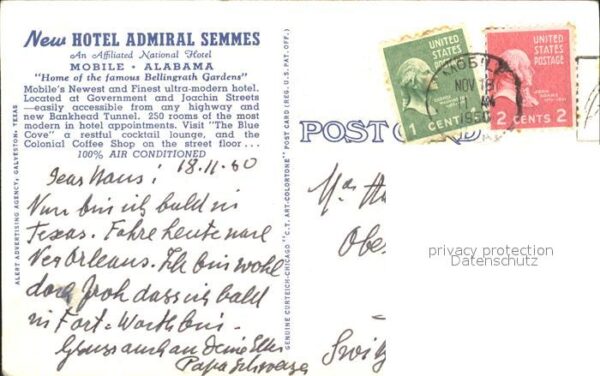 New HOTEL ADMIRAL SEMMES
An Affiliated National Hotel
MOBILE · ALABAMA
"Home of the famous Bellingrath Gardens"
Mobile's Newest and Finest ultra-modern hotel.
Located at Government and Joachin Streets
—easily accessible from any highway and
new Bankhead Tunnel. 250 rooms of the most
modern in hotel appointments. Visit "The Blue
Cove" a restful cocktail lounge, and the
Colonial Coffee Shop on the street floor . . .
100% AIR CONDITIONED
18.11.50
Dear Hans!
Nun bin ich bald in
Texas. Fahre heute nach
New Orleans. Ich bin wohl
doch froh dass ich bald
in Fort-Worth bin.
Gruss auch an deine Eltern
Papa Schwarz
ALERT ADVERTISING AGENCY, GALVESTON, TEXAS
GENUINE CURTEICH-CHICAGO "C.T. ART-COLORTONE" POST CARD (REG. U.S. PAT. OFF.)
POST CARD
UNITED
STATES
POSTAGE
1 CENT
UNITED
STATES
POSTAGE
JOHN ADAMS
2 CENTS 2
NOV 18
AM
1950
Obe
Switz
privacy protection
Datenschutz